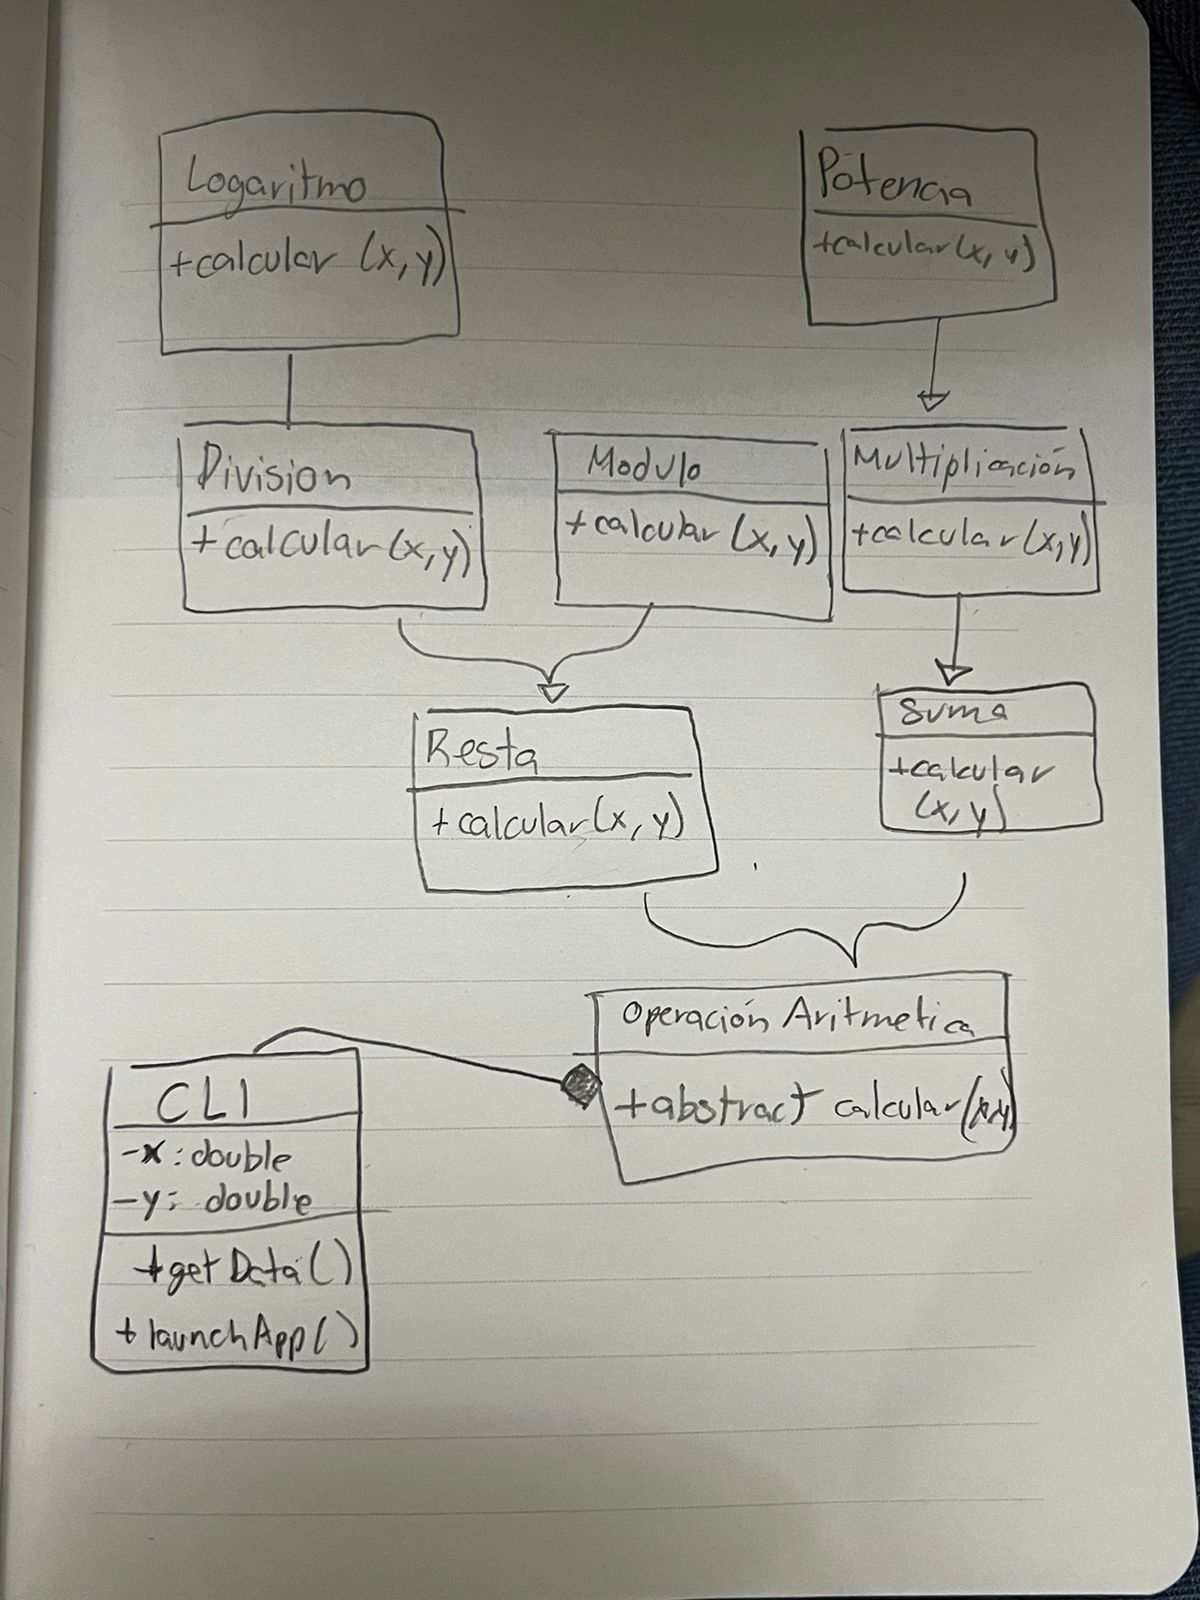 Logaritmo
+calcular (x, y)
Potencia
+calcular(x, y)
Division
+ calcular(x, y)
Modulo
+ calcular (x, y)
Multiplicación
+calcular(x,y)
Resta
+ calcular(x, y)
Suma
+calcular
(x, y)
Operación Aritmetica
+abstract calcular(x,y)
CLI
-x: double
-y: double
+getData()
+ launchApp()